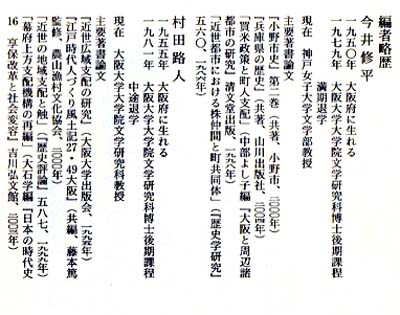 編者略歴
今井修平
一九五〇年　大阪府に生れる
一九七九年　大阪大学大学院文学研究科博士後期課程
満期退学
現在　神戸女子大学文学部教授
主要著書論文
『小野市史』第二巻（共著、小野市、二〇〇三年）
『兵庫県の歴史』（共著、山川出版社、二〇〇四年）
「買米政策と町人支配」（中部よし子編『大阪と周辺諸
都市の研究』清文堂出版、一九九四年）
「近世都市における株仲間と町共同体」（『歴史学研究』
五六〇、一九八六年）
村田路人
一九五五年　大阪府に生れる
一九八一年　大阪大学大学院文学研究科博士後期課程
中途退学
現在　大阪大学大学院文学研究科教授
主要著書論文
『近世広域支配の研究』（大阪大学出版会、一九九五年）
『江戸時代人づくり風土記27・49大阪』（共編、藤本篤
監修、農山漁村文化協会、二〇〇〇年）
「近世の地域支配と触」（『歴史評論』五八七、一九九九年）
「幕府上方支配機構の再編」（大石学編『日本の時代史
16 享保改革と社会変容』吉川弘文館、二〇〇三年）